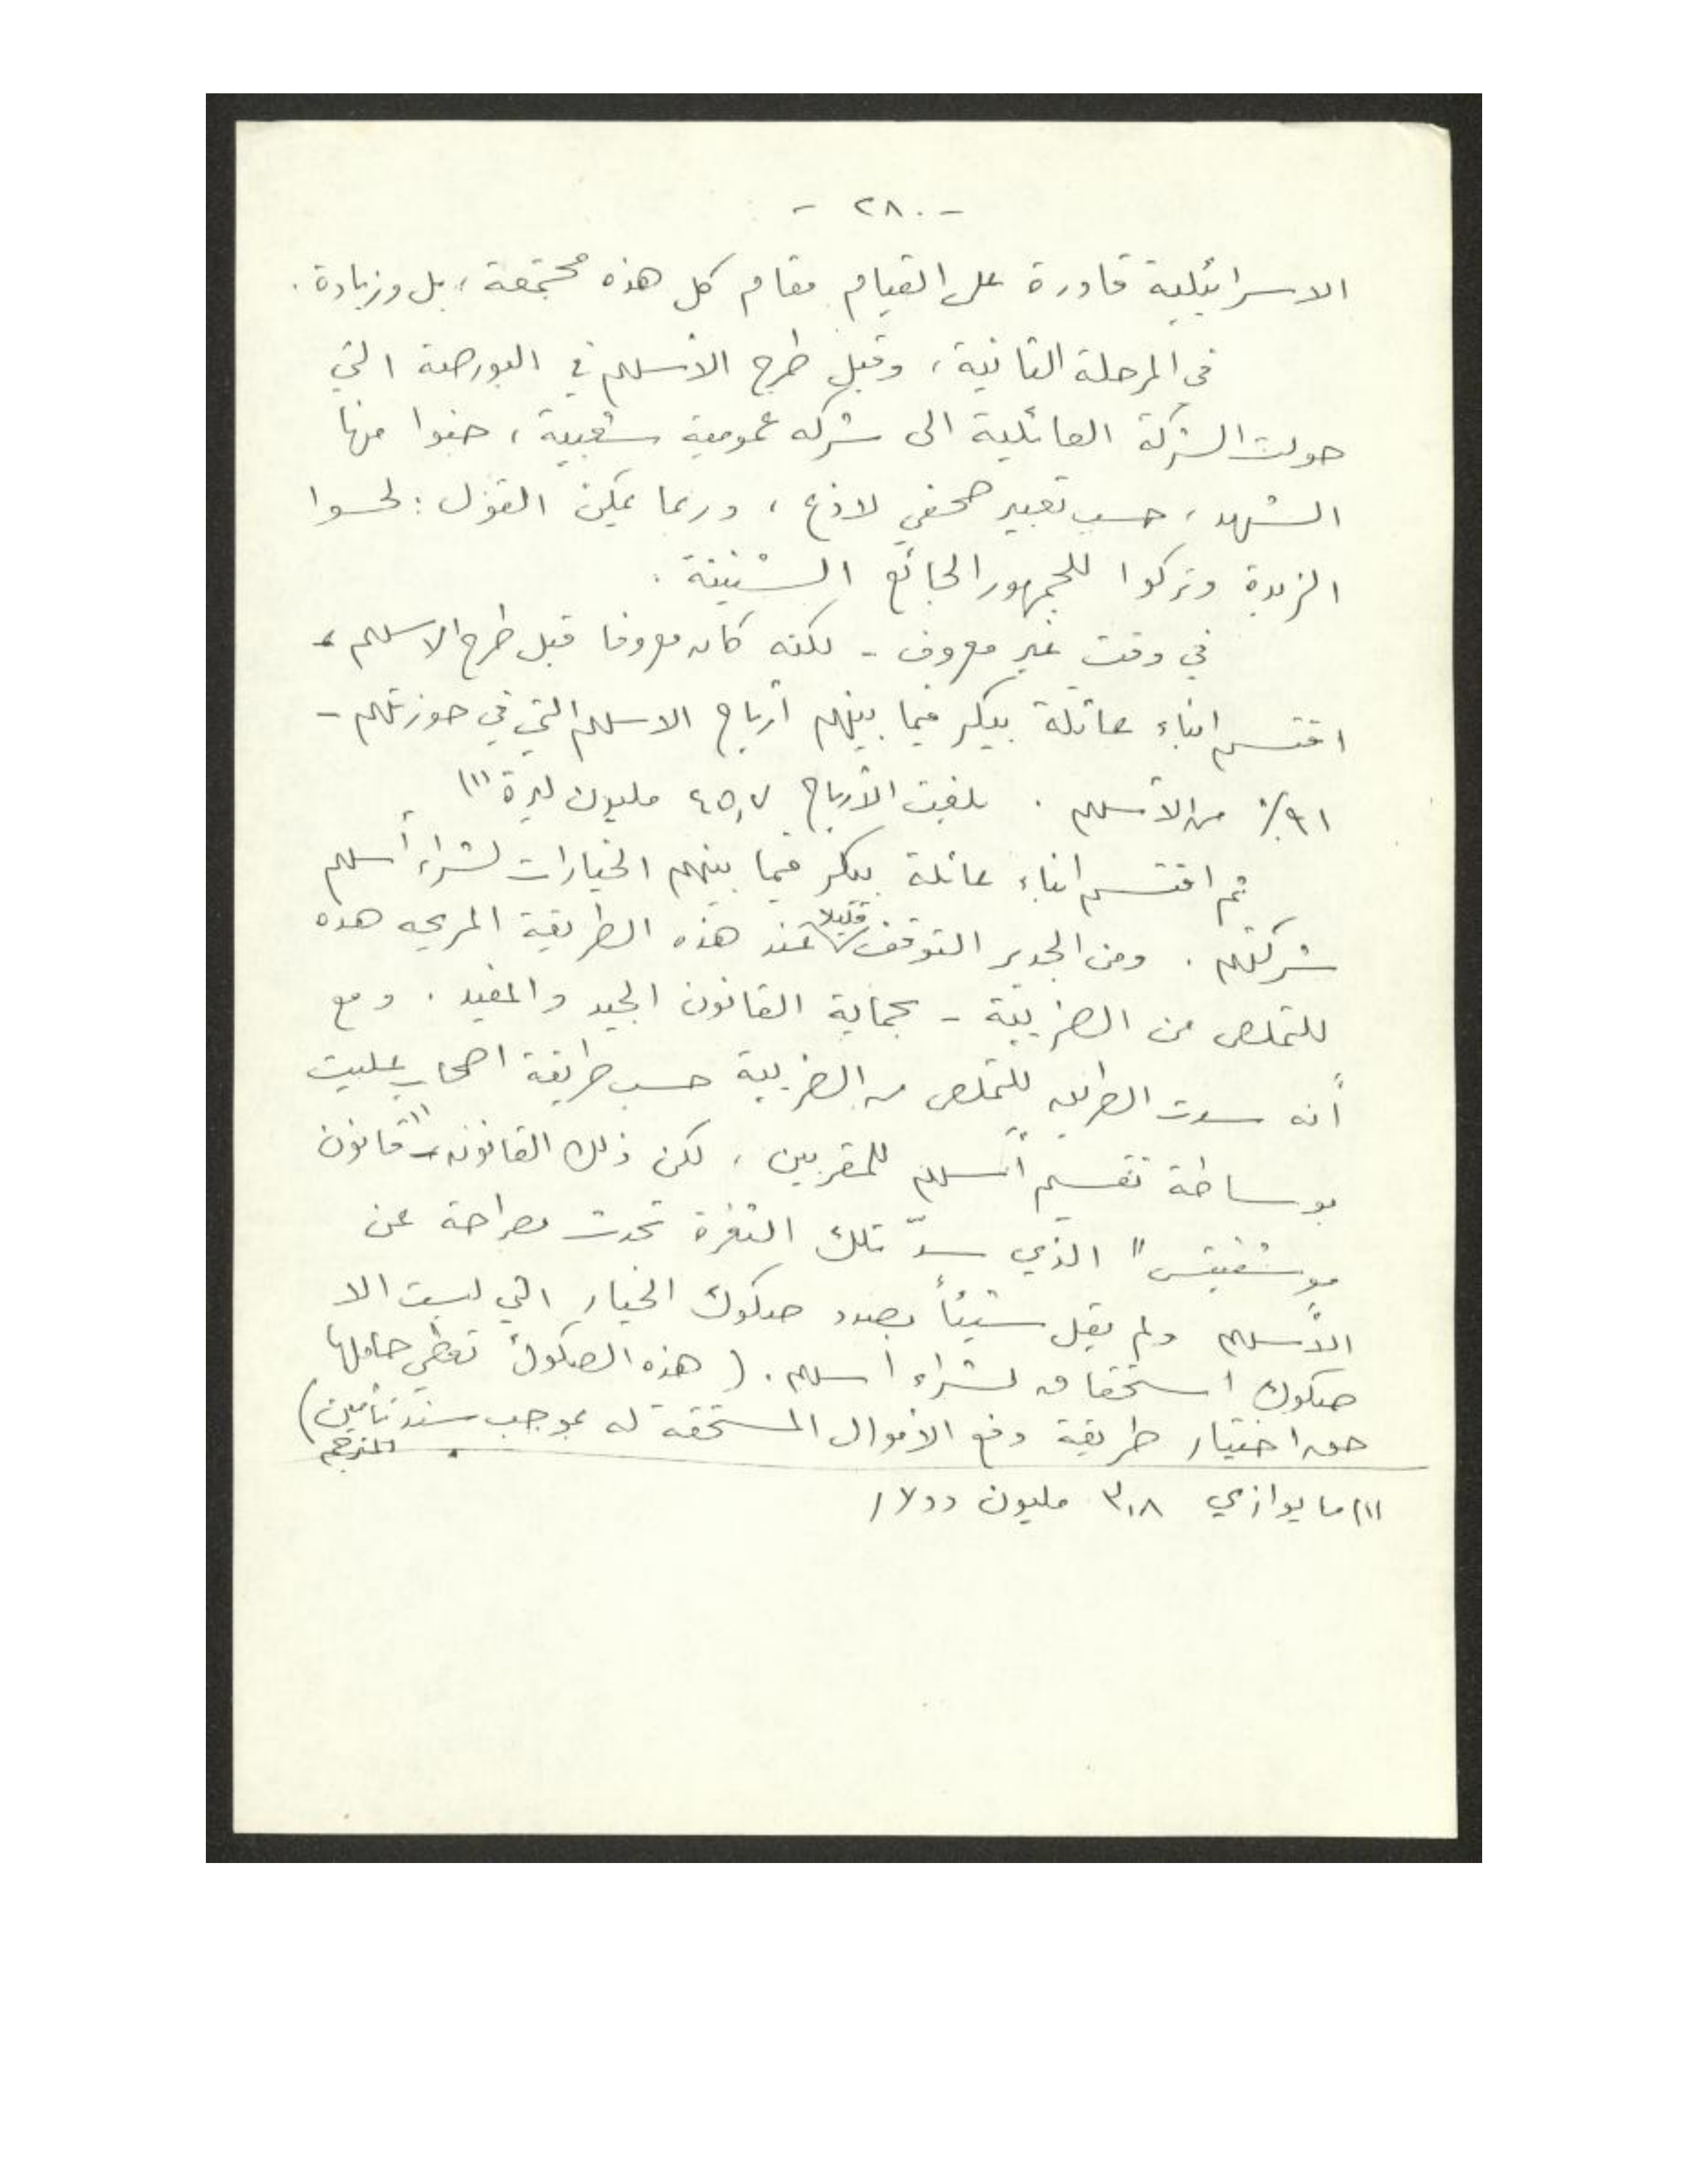 - ٢٨٠ -
الاسرائيلية قادرة على القيام مقام كل هذه مجتمعة، بل وزيادة.
في المرحلة الثانية، وقبل طرح الاسهم في البورصة التي
حولت الشركة العائلية الى شركة عمومية شعبية، جنوا منها
الشهد، حسب تعبير صحفي لاذع، وربما يمكن القول: لحسوا
الزبدة وتركوا للجمهور الجائع الشنينة.
في وقت غير معروف - لكنه كان معروفا قبل طرح الاسهم -
اقتسم ابناء عائلة بيكر فيما بينهم أرباح الاسهم التي في حوزتهم -
٩١٪ من الأسهم. بلغت الأرباح ٤٥,٧ مليون ليرة (١)
ثم اقتسم ابناء عائلة بيكر فيما بينهم الخيارات لشراء أسهم
شركتهم. ومن الجدير التوقف قليلا عند هذه الطريقة المريحه هذه
للتملص من الضريبة - بحماية القانون الجيد والمفيد. ومع
أنه سدت الطريق للتملص من الضريبة حسب طريقة اصحاب عليت
بوساطة تقسيم أسهم للمقربين، لكن ذلك القانون - "قانون
موشفيتس" الذي سدّ تلك الثغرة تحدث صراحة عن
الأسهم ولم يقل شيئاً بصدد صكوك الخيار التي ليست الا
صكوك استحقاق لشراء أسهم. (هذه الصكوك تعطي حاملها
حق اختيار طريقة دفع الاموال المستحقة له بموجب سند تأمين)
المترجم
(١) ما يوازي ٣,٨ مليون دولار